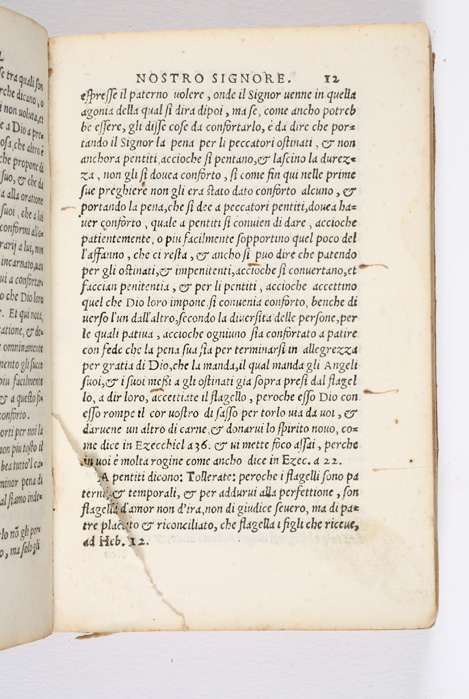 NOSTRO SIGNORE. 12
espresse il paterno uolere, onde il Signor uenne in quella
agonia della qual si dira dipoi, ma se, come ancho potreb
be essere, gli disse cose da confortarlo, è da dire che por-
tando il Signor la pena per li peccatori ostinati, & non
anchora pentiti, accioche si pentano, & lascino la durez-
za, non gli si douea conforto, si come fin qui nelle prime
sue preghiere non gli era stato dato conforto alcuno, &
portando la pena, che si dee a peccatori pentiti, douea ha-
uer conforto, quale a pentiti si conuien di dare, accioche
patientemente, o piu facilmente sopportino quel poco del
l'affanno, che ci resta, & ancho si puo dire che patendo
per gli ostinati, & impenitenti, accioche si conuertano, et
faccian penitentia, & per li pentiti, accioche accettino
quel che Dio loro impone si conuenia conforto, benche di
uerso l'un dall'altro, secondo la diuersita delle persone, per
le quali patiua, accioche ogniuno sia confortato a patire
con fede che la pena sua sia per terminarsi in allegrezza
per gratia di Dio, che la manda, il qual manda gli Angeli
suoi, & i suoi messi a gli ostinati gia sopra presi dal flagel
lo, a dir loro, accettiate il flagello, peroche esso Dio con
esso rompe il cor uostro di sasso per torlo uia da uoi, &
daruene un altro di carne, & donarui lo spirito nouo, co-
me dice in Ezecchiel a 36. & ui mette foco assai, perche
in uoi è molta rogine come ancho dice in Ezec. a 22.
A pentiti dicono: Tollerate: peroche i flagelli sono pa
terni, & temporali, & per addurui alla perfettione, son
flagella d'amor non d'ira, non di giudice seuero, ma di pa-
tre placato & riconciliato, che flagella i figli che riceue,
ad Heb. 12.